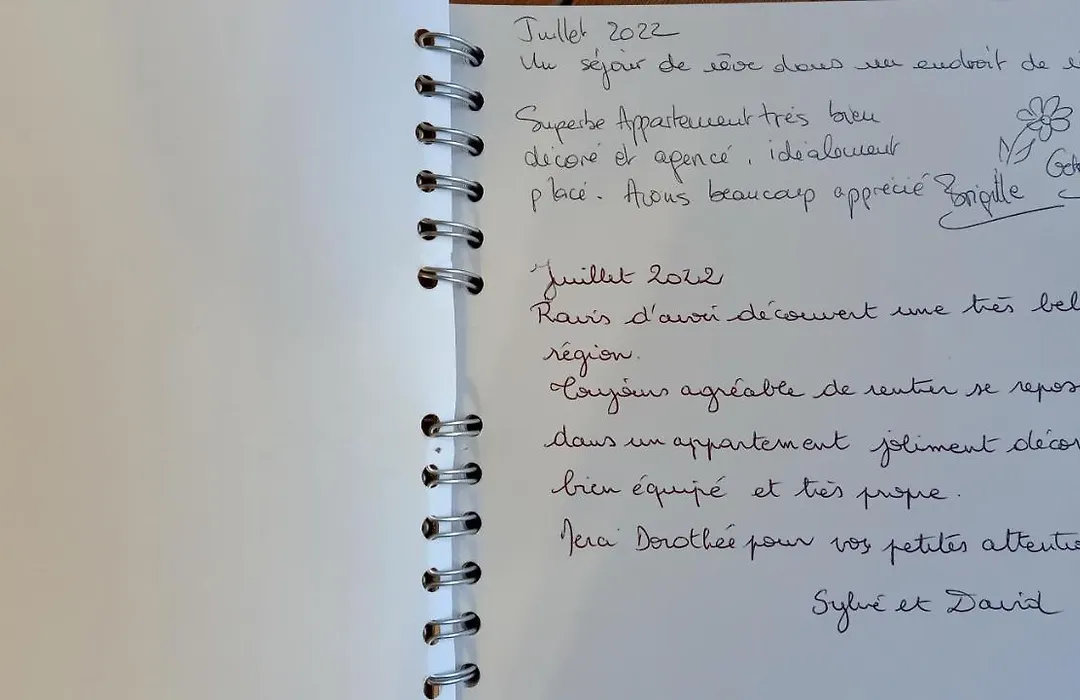 Juillet 2022
Un séjour de rêve dans un endroit de
Superbe Appartement très bien
décoré et agencé, idéalement
placé. Avons beaucoup apprécié Brigitte
Juillet 2022
Ravis d'avoi découvert une très bel
région.
Toujours agréable de rentrer se repos
dans un appartement joliment décor
bien équipé et très propre.
Merci Dorothée pour vos petites attentio
Sylvé et David